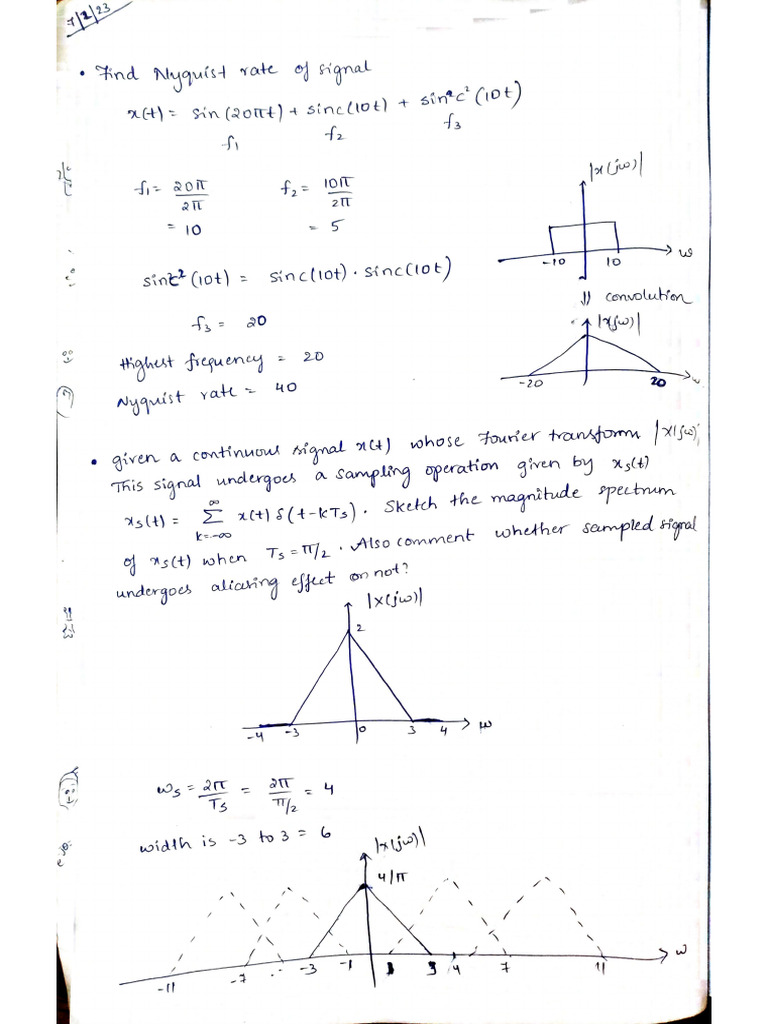 7/2/23
• Find Nyquist rate of signal
x(t) = sin(20πt) + sinc(10t) + sinc²(10t)
f₁ f₂ f₃
f₁ = 20π/2π f₂ = 10π/2π
= 10 = 5
|x(jω)|
-10 10 ω
sinc²(10t) = sinc(10t) · sinc(10t)
⇓ convolution
f₃ = 20
|x(jω)|
Highest frequency = 20
-20 20 ω
Nyquist rate = 40
• given a continuous signal x(t) whose Fourier transform |X(jω)|
This signal undergoes a sampling operation given by xs(t)
xs(t) = ∞ Σ k=-∞ x(t) δ(t-kTs). Sketch the magnitude spectrum
of xs(t) when Ts = π/2. Also comment whether sampled signal
undergoes aliasing effect or not?
|X(jω)|
2
-4 -3 0 3 4 ω
ωs = 2π/Ts = 2π/π/2 = 4
width is -3 to 3 = 6
|x(jω)|
4/π
-11 -7 -3 -1 1 3 4 7 11 ω